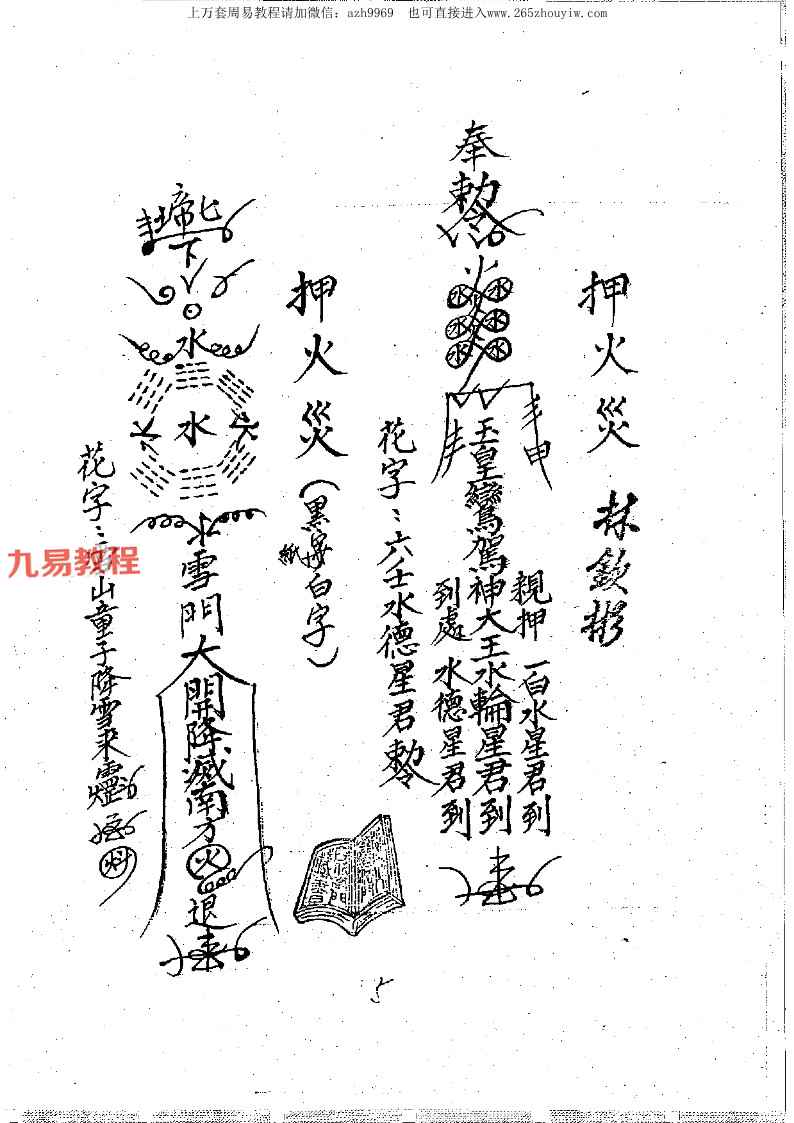 上万套周易教程请加微信：azh9969 也可直接进入www.265zhouyiw.com
押火災 林欽彬
奉
勅令
火
水水
水水
水水
甲
親押 一白水星君到
玉皇鸞駕神大王水輪星君到
到處 水德星君到
花字：六壬水德星君勅令
押火災（黑紙白字）
下
水
水
雪門大開降滅南方火退
花字：雪山童子降雪來靈
九易教程
5